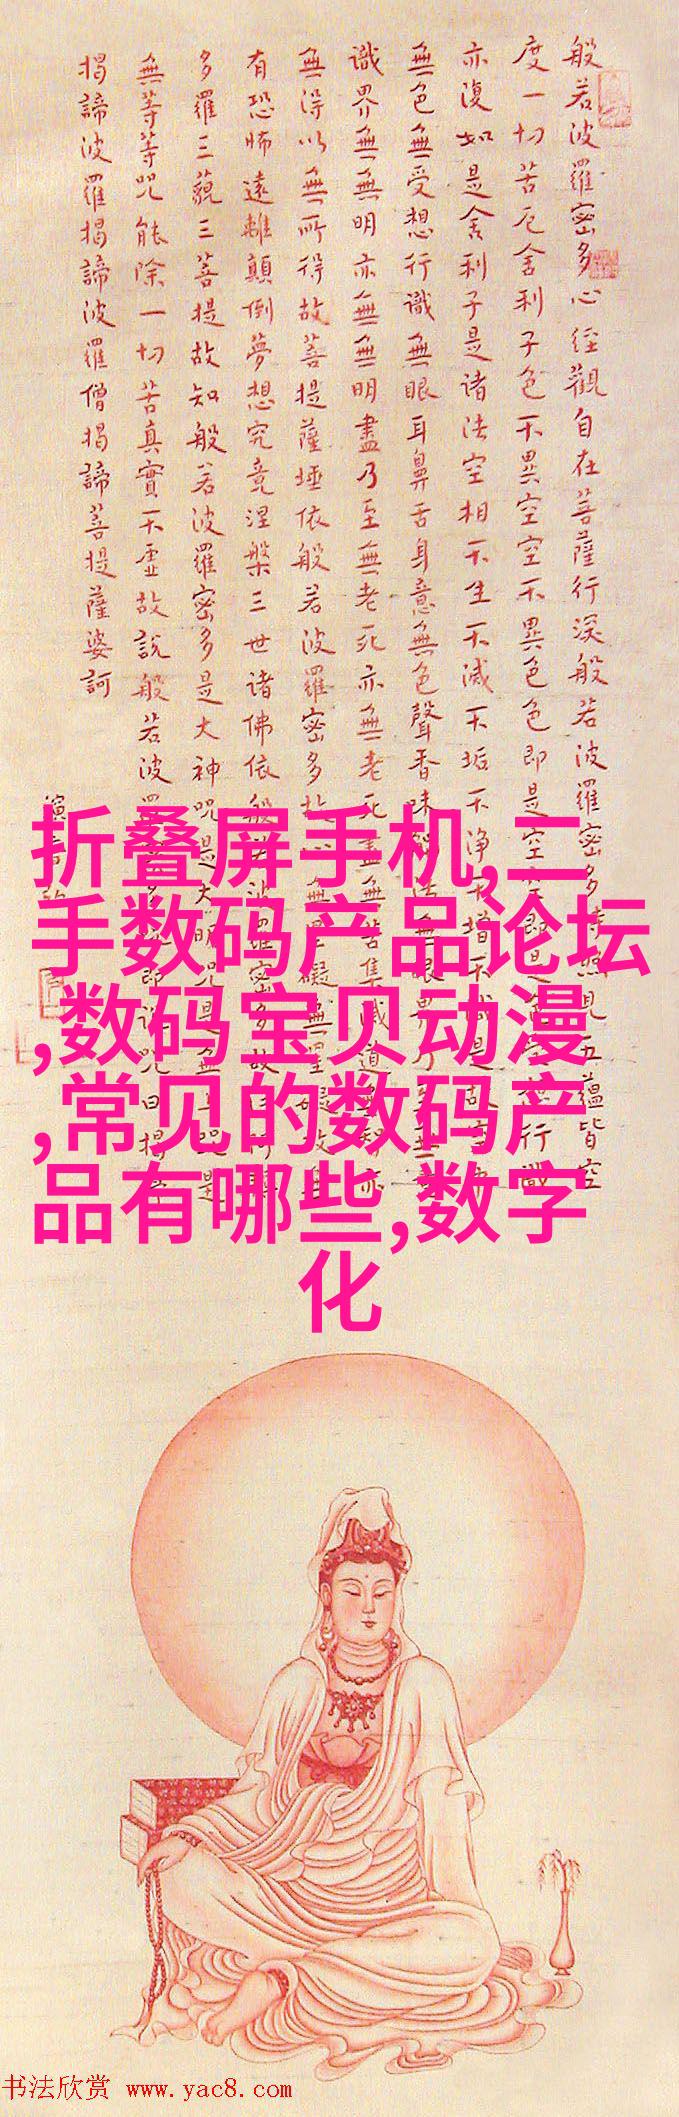 般若波羅密多心經觀自在菩薩行深般若波羅密多時照見五蘊皆空
度一切苦厄舍利子色不異空空不異色色即是空空即是行識
亦復如是舍利子是诸法空相不生不滅不垢不净不增不是故空
無色無受想行識無眼耳鼻舌身意無色聲香味法無眼界乃
識界無無明亦無無明盡乃至無老死亦無老死盡無苦集滅道亦
無得以無所得故菩提薩埵依般若波羅密多故心無罣礙無罣礙故無
有恐怖遠離顛倒夢想究竟涅槃三世诸佛依般若波羅密多故阿
多羅三藐三菩提故知般若波羅密多是大神咒是大明咒是無上咒是
無等等咒能除一切苦真實不虚故説般若波羅密多咒即說咒曰揭諦
揭諦波羅揭諦波羅僧揭諦菩提薩婆訶
演音
折叠屏手机,二
手数码产品论坛
,数码宝贝动漫
,常见的数码产
品有哪些,数字
化
书法欣赏 www.yac8.com